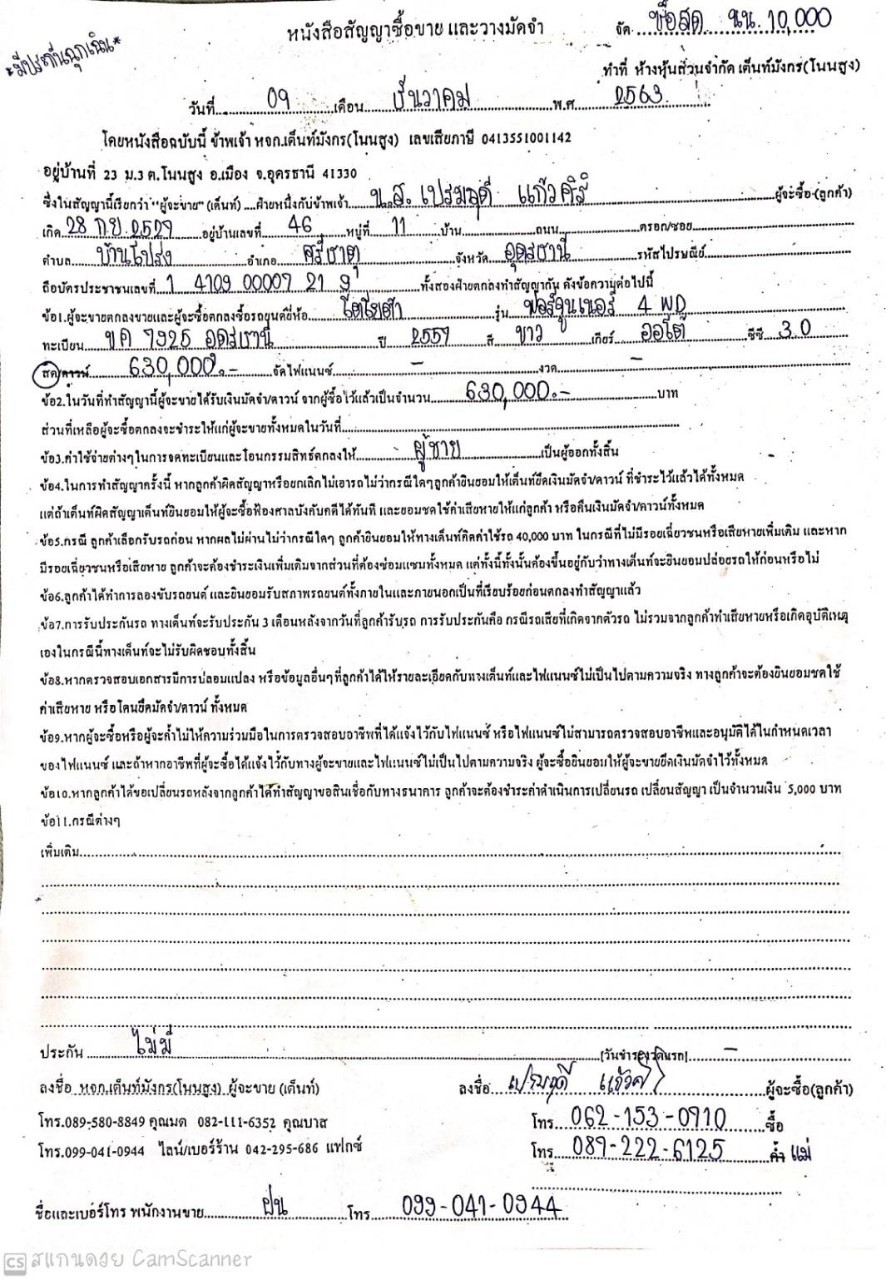 หนังสือสัญญาซื้อขาย และวางมัดจำ
จัด ซื้อสด นน. 10,000
*มีประกันฉุกเฉิน*
ทำที่ ห้างหุ้นส่วนจำกัด เต็นท์มังกร(โนนสูง)
วันที่ 09 เดือน ธันวาคม พ.ศ 2563
โดยหนังสือฉบับนี้ ข้าพเจ้า หจก.เต็นท์มังกร(โนนสูง) เลขเสียภาษี 0413551001142
อยู่บ้านที่ 23 ม.3 ต.โนนสูง อ.เมือง จ.อุดรธานี 41330
ซึ่งในสัญญานี้เรียกว่า "ผู้จะขาย" (เต็นท์) ฝ่ายหนึ่งกับข้าพเจ้า น.ส. เปรมฤดี แก้วศิริ ผู้จะซื้อ (ลูกค้า)
เกิด 28 ก.ย. 2529 อยู่บ้านเลขที่ 46 หมู่ที่ 11 บ้าน ถนน ตรอก/ซอย
ตำบล บ้านโปร่ง อำเภอ ศรีธาตุ จังหวัด อุดรธานี รหัสไปรษณีย์
ถือบัตรประชาชนเลขที่ 1 4109 00007 21 9 ทั้งสองฝ่ายตกลงทำสัญญากัน ดังข้อความต่อไปนี้
ข้อ1.ผู้จะขายตกลงขายและผู้จะซื้อตกลงซื้อรถยนต์ยี่ห้อ โตโยต้า รุ่น ฟอร์จูนเนอร์ 4 WD
ทะเบียน ขค 7925 อุดรธานี ปี 2557 สี ขาว เกียร์ ออโต้ ซีซี 3.0
สด/ดาวน์ 630,000.- จัดไฟแนนซ์ - งวด -
ข้อ2.ในวันที่ทำสัญญานี้ผู้จะขายได้รับเงินมัดจำ/ดาวน์ จากผู้ซื้อไว้แล้วเป็นจำนวน 630,000.- บาท
ส่วนที่เหลือผู้จะซื้อตกลงจะชำระให้แก่ผู้จะขายทั้งหมดในวันที่
ข้อ3.ค่าใช้จ่ายต่างๆในการจดทะเบียนและโอนกรรมสิทธิ์ตกลงให้ ผู้ขาย เป็นผู้ออกทั้งสิ้น
ข้อ4.ในการทำสัญญาครั้งนี้ หากลูกค้าผิดสัญญาหรือยกเลิกไม่เอารถไม่ว่ากรณีใดๆลูกค้ายินยอมให้เต็นท์ยึดเงินมัดจำ/ดาวน์ ที่ชำระไว้แล้วได้ทั้งหมด
แต่ถ้าเต็นท์ผิดสัญญาเต็นท์ยินยอมให้ผู้จะซื้อฟ้องศาลบังคับคดีได้ทันที และยอมชดใช้ค่าเสียหายให้แก่ลูกค้า หรือคืนเงินมัดจำ/ดาวน์ทั้งหมด
ข้อ5.กรณี ลูกค้าเลือกรับรถก่อน หากผลไม่ผ่านไม่ว่ากรณีใดๆ ลูกค้ายินยอมให้ทางเต็นท์คิดค่าใช้รถ 40,000 บาท ในกรณีที่ไม่มีรอยเฉี่ยวชนหรือเสียหายเพิ่มเติม และหาก
มีรอยเฉี่ยวชนหรือเสียหาย ลูกค้าจะต้องชำระเงินเพิ่มเติมจากส่วนที่ต้องซ่อมแซมทั้งหมด แต่ทั้งนี้ทั้งนั้นต้องขึ้นอยู่กับว่าทางเต็นท์จะยินยอมปล่อยรถให้ก่อนหรือไม่
ข้อ6.ลูกค้าได้ทำการลองขับรถยนต์ และยินยอมรับสภาพรถยนต์ทั้งภายในและภายนอกเป็นที่เรียบร้อยก่อนตกลงทำสัญญาแล้ว
ข้อ7.การรับประกันรถ ทางเต็นท์จะรับประกัน 3 เดือนหลังจากวันที่ลูกค้ารับรถ การรับประกันคือ กรณีรถเสียที่เกิดจากตัวรถ ไม่รวมจากลูกค้าทำเสียหายหรือเกิดอุบัติเหตุ
เองในกรณีนี้ทางเต็นท์จะไม่รับผิดชอบทั้งสิ้น
ข้อ8.หากตรวจสอบเอกสารมีการปลอมแปลง หรือข้อมูลอื่นๆที่ลูกค้าได้ให้รายละเอียดกับทางเต็นท์และไฟแนนซ์ไม่เป็นไปตามความจริง ทางลูกค้าจะต้องยินยอมชดใช้
ค่าเสียหาย หรือโดนยึดมัดจำ/ดาวน์ ทั้งหมด
ข้อ9.หากผู้จะซื้อหรือผู้จะค้ำไม่ให้ความร่วมมือในการตรวจสอบอาชีพที่ได้แจ้งไว้กับไฟแนนซ์ หรือไฟแนนซ์ไม่สามารถตรวจสอบอาชีพและอนุมัติได้ในกำหนดเวลา
ของไฟแนนซ์ และถ้าหากอาชีพที่ผู้จะซื้อได้แจ้งไว้กับทางผู้จะขายและไฟแนนซ์ไม่เป็นไปตามความจริง ผู้จะซื้อยินยอมให้ผู้จะขายยึดเงินมัดจำไว้ทั้งหมด
ข้อ10.หากลูกค้าได้ขอเปลี่ยนรถหลังจากลูกค้าได้ทำสัญญาขอสินเชื่อกับทางธนาคาร ลูกค้าจะต้องชำระค่าดำเนินการเปลี่ยนรถ เปลี่ยนสัญญา เป็นจำนวนเงิน 5,000 บาท
ข้อ11.กรณีต่างๆ
เพิ่มเติม
ประกัน ไม่มี (วันชำระงวดแรก) -
ลงชื่อ หจก.เต็นท์มังกร(โนนสูง) ผู้จะขาย (เต็นท์) ลงชื่อ เปรมฤดี แก้วศิริ ผู้จะซื้อ(ลูกค้า)
โทร.089-580-8849 คุณมด 082-111-6352 คุณบาส โทร. 062-153-0910 ซื้อ
โทร.099-041-0944 ไลน์/เบอร์ร้าน 042-295-686 แฟกซ์ โทร. 089-222-6125 ค้ำ แม่
ชื่อและเบอร์โทร พนักงานขาย ฝน โทร 099-041-0944
CS สแกนด้วย CamScanner